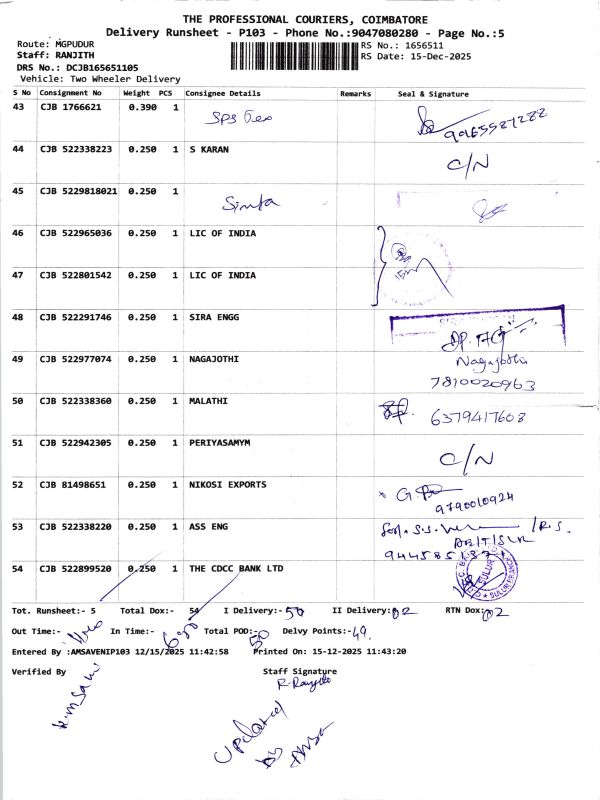 THE PROFESSIONAL COURIERS, COIMBATORE
Delivery Runsheet - P103 - Phone No.:9047080280 - Page No.:5
Route: MGPUDUR
RS No.: 1656511
Staff: RANJITH
RS Date: 15-Dec-2025
DRS No.: DCJB165651105
Vehicle: Two Wheeler Delivery
S No Consignment No Weight PCS Consignee Details Remarks Seal & Signature
43 CJB 1766621 0.390 1 SPS
44 CJB 522338223 0.250 1 S KARAN C/N
45 CJB 5229818021 0.250 1
46 CJB 522965036 0.250 1 LIC OF INDIA
47 CJB 522801542 0.250 1 LIC OF INDIA
48 CJB 522291746 0.250 1 SIRA ENGG
49 CJB 522977074 0.250 1 NAGAJOTHI Nagajothi
7810020963
50 CJB 522338360 0.250 1 MALATHI 6379417608
51 CJB 522942305 0.250 1 PERIYASAMYM C/N
52 CJB 81498651 0.250 1 NIKOSI EXPORTS G.
9790010924
53 CJB 522338220 0.250 1 ASS ENG
54 CJB 522899520 0.250 1 THE CDCC BANK LTD SULUR
Tot. Runsheet:- 5 Total Dox:- 54 I Delivery:- 50 II Delivery:- 02 RTN Dox:- 02
Out Time:- In Time:- 630 Total POD:- 50 Delvy Points:- 49
Entered By :AMSAVENIP103 12/15/2025 11:42:58 Printed On: 15-12-2025 11:43:20
Verified By Staff Signature
Updated
by